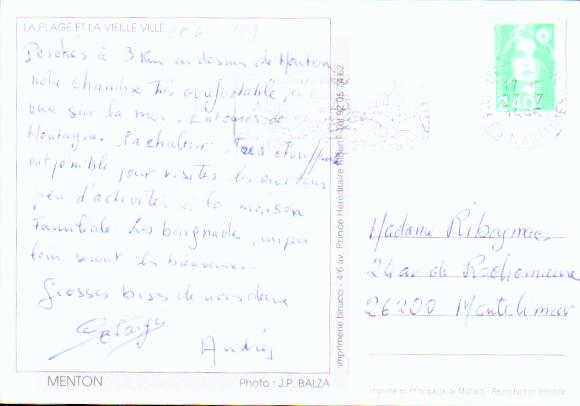 LA PLAGE ET LA VIEILLE VILLE
Perchés à 3 Km au dessus de Menton
notre chambre très confortable, a
vue sur la mer. Entourés de
Montagnes la chaleur très étouffante
est pénible pour visiter les environs
peu d'activités à la maison
Familiale les baignades, un peu
loin seront les bienvenues.
Grosses bises de nous deux
Andrée
MENTON
Photo : J.P. BALZA
imprimerie binucci - 4/6 av. Prince Héréditaire Albert
2,40
17
1995
Madame Ribagnac
24 av de Rochemaure
26200 Montelimar
Imprimé en Principauté de Monaco - Reproduction interdite